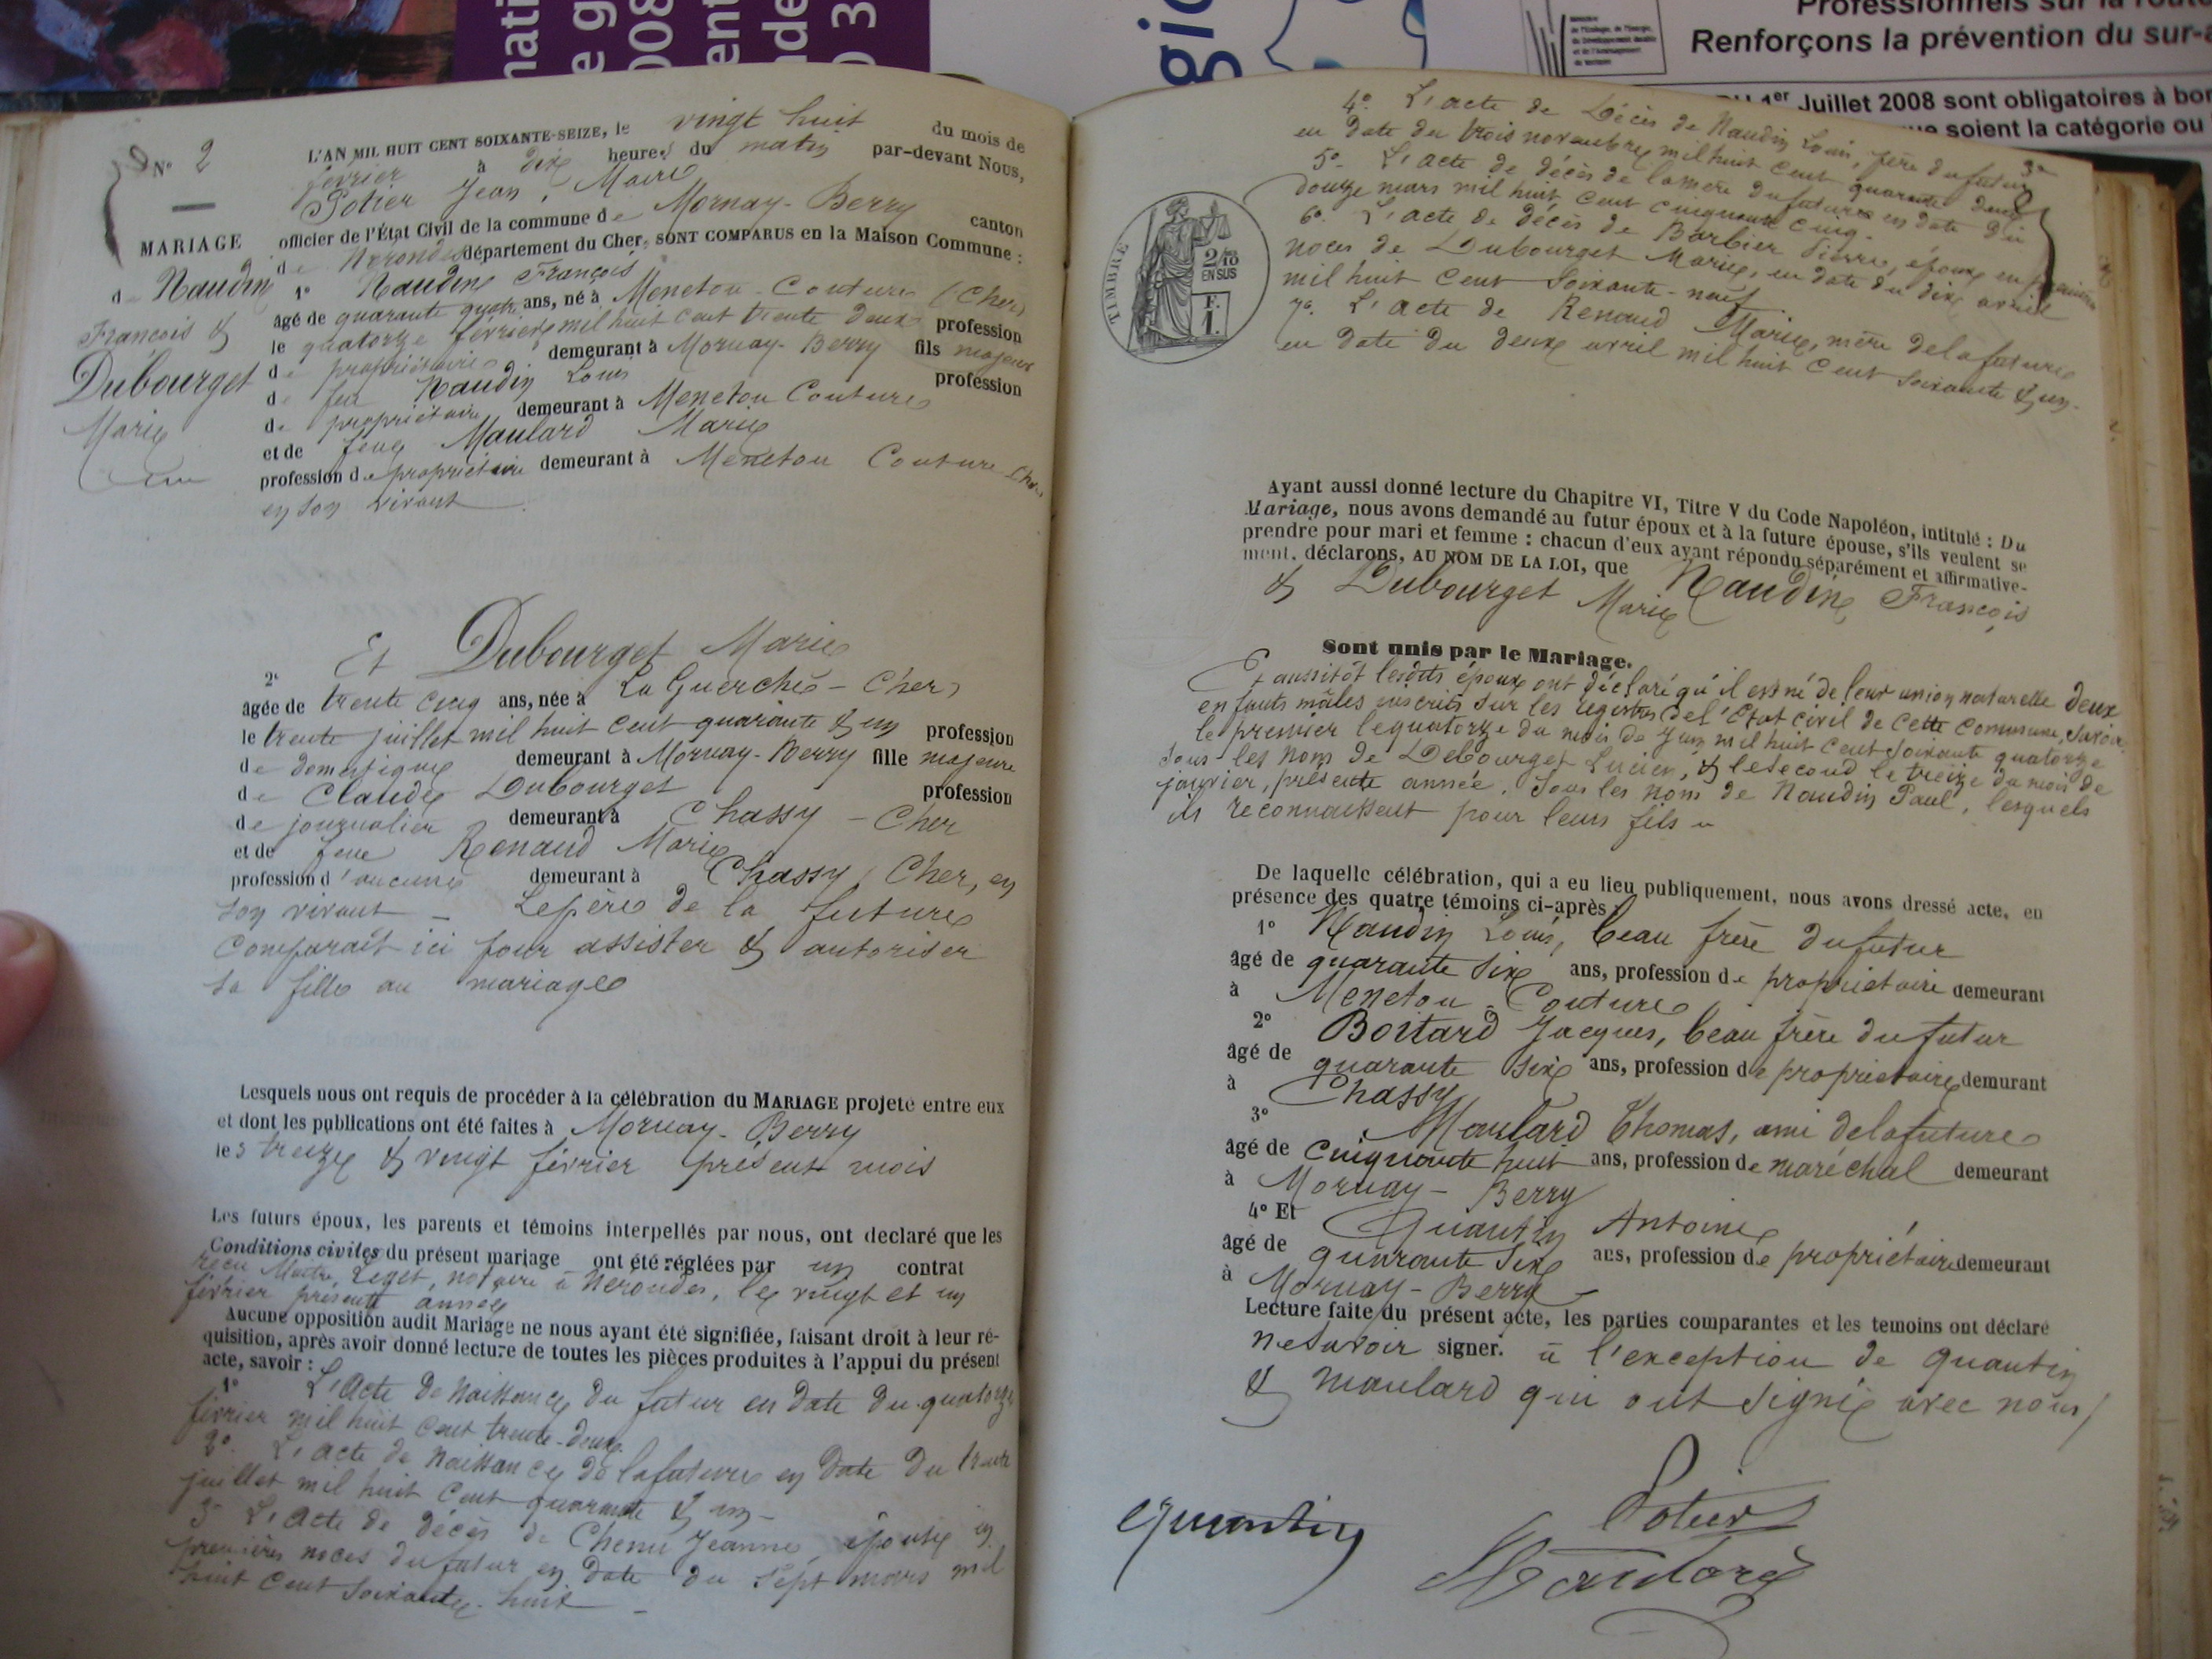 Professionnels sur la route
Renforçons la prévention du sur-
1er Juillet 2008 sont obligatoires à bor
que soient la catégorie ou
N° 2
MARIAGE
de Naudin
François &
Dubourget
Marie
L'AN MIL HUIT CENT SOIXANTE-SEIZE, le vingt huit du mois de
février à dix heures du matin par-devant Nous,
Potier Jean, Maire
officier de l'État Civil de la commune de Mornay-Berry canton
de Nérondes département du Cher, SONT COMPARUS en la Maison Commune :
1° Naudin François
âgé de quarante quatre ans, né à Menetou-Couture (Cher)
le quatorze février mil huit cent trente deux profession
de propriétaire demeurant à Mornay-Berry fils majeur
de feu Naudin Louis profession
de propriétaire demeurant à Menetou Couture
et de feue Maulard Marie
profession de propriétaire demeurant à Menetou Couture Cher
en son vivant
Et Dubourget Marie
2°
âgée de trente cinq ans, née à La Guerche - Cher
le trente juillet mil huit cent quarante & un profession
de domestique demeurant à Mornay-Berry fille majeure
de Claude Dubourget profession
de journalier demeurant à Chassy - Cher
et de feue Renaud Marie
profession d'aucune demeurant à Chassy Cher, en
son vivant - Le père de la future
comparaît ici pour assister & autoriser
sa fille au mariage
Lesquels nous ont requis de procéder à la célébration du MARIAGE projeté entre eux
et dont les publications ont été faites à Mornay-Berry
les treize & vingt février présent mois
Les futurs époux, les parents et témoins interpellés par nous, ont declaré que les
Conditions civiles du présent mariage ont été réglées par un contrat
reçu Maître Léget, notaire à Nérondes, le vingt et un
février présente année
Aucune opposition audit Mariage ne nous ayant été signifiée, faisant droit à leur ré-
quisition, après avoir donné lecture de toutes les pièces produites à l'appui du présent
acte, savoir :
1° L'Acte de Naissance du futur en date du quatorze
février mil huit cent trente-deux
2° L'acte de Naissance de la future en date du trente
juillet mil huit cent quarante & un -
3° L'Acte de décès de Chenu Jeanne, épouse en
premières noces du futur en date du sept mars mil
huit cent soixante-huit -
TIMBRE
2/10
EN SUS
F.
1.
4° L'acte de Décès de Naudin Louis, père du futur
en date du trois novembre mil huit cent quarante deux
5° L'acte de décès de la mère du futur en date du
douze mars mil huit cent cinquante cinq.
6° L'acte de décès de Barbier Pierre, époux en premières
noces de Dubourget Marie, en date du dix avril
mil huit cent soixante-neuf
7° L'acte de Renaud Marie, mère de la future
en date du deux avril mil huit cent soixante & un.
Ayant aussi donné lecture du Chapitre VI, Titre V du Code Napoléon, intitulé : Du
Mariage, nous avons demandé au futur époux et à la future épouse, s'ils veulent se
prendre pour mari et femme : chacun d'eux ayant répondu séparément et affirmative-
ment, déclarons, AU NOM DE LA LOI, que Naudin François
& Dubourget Marie
Sont unis par le Mariage.
Et aussitôt lesdits époux ont déclaré qu'il est né de leur union naturelle deux
enfants mâles inscrits sur les registres de l'État civil de cette commune, savoir
le premier le quatorze du mois de Juin mil huit cent soixante quatorze
sous les nom de Debourget Lucien, & le second le treize du mois de
janvier, présente année. Sous les nom de Naudin Paul, lesquels
ils reconnaissent pour leurs fils
De laquelle célébration, qui a eu lieu publiquement, nous avons dressé acte, en
présence des quatre témoins ci-après :
1° Naudin Louis, beau frère du futur
âgé de quarante six ans, profession de propriétaire demeurant
à Menetou-Couture
2° Boitard Jacques, beau frère du futur
âgé de quarante six ans, profession de propriétaire demurant
à Chassy
3° Maulard Thomas, ami de la future
âgé de cinquante huit ans, profession de maréchal demeurant
à Mornay-Berry
4° Et Quantin Antoine
âgé de quarante six ans, profession de propriétaire demeurant
à Mornay-Berry
Lecture faite du présent acte, les parties comparantes et les temoins ont déclaré
ne savoir signer. à l'exception de Quantin
& Maulard qui ont signé avec nous
Quantin
Potier
Maulard